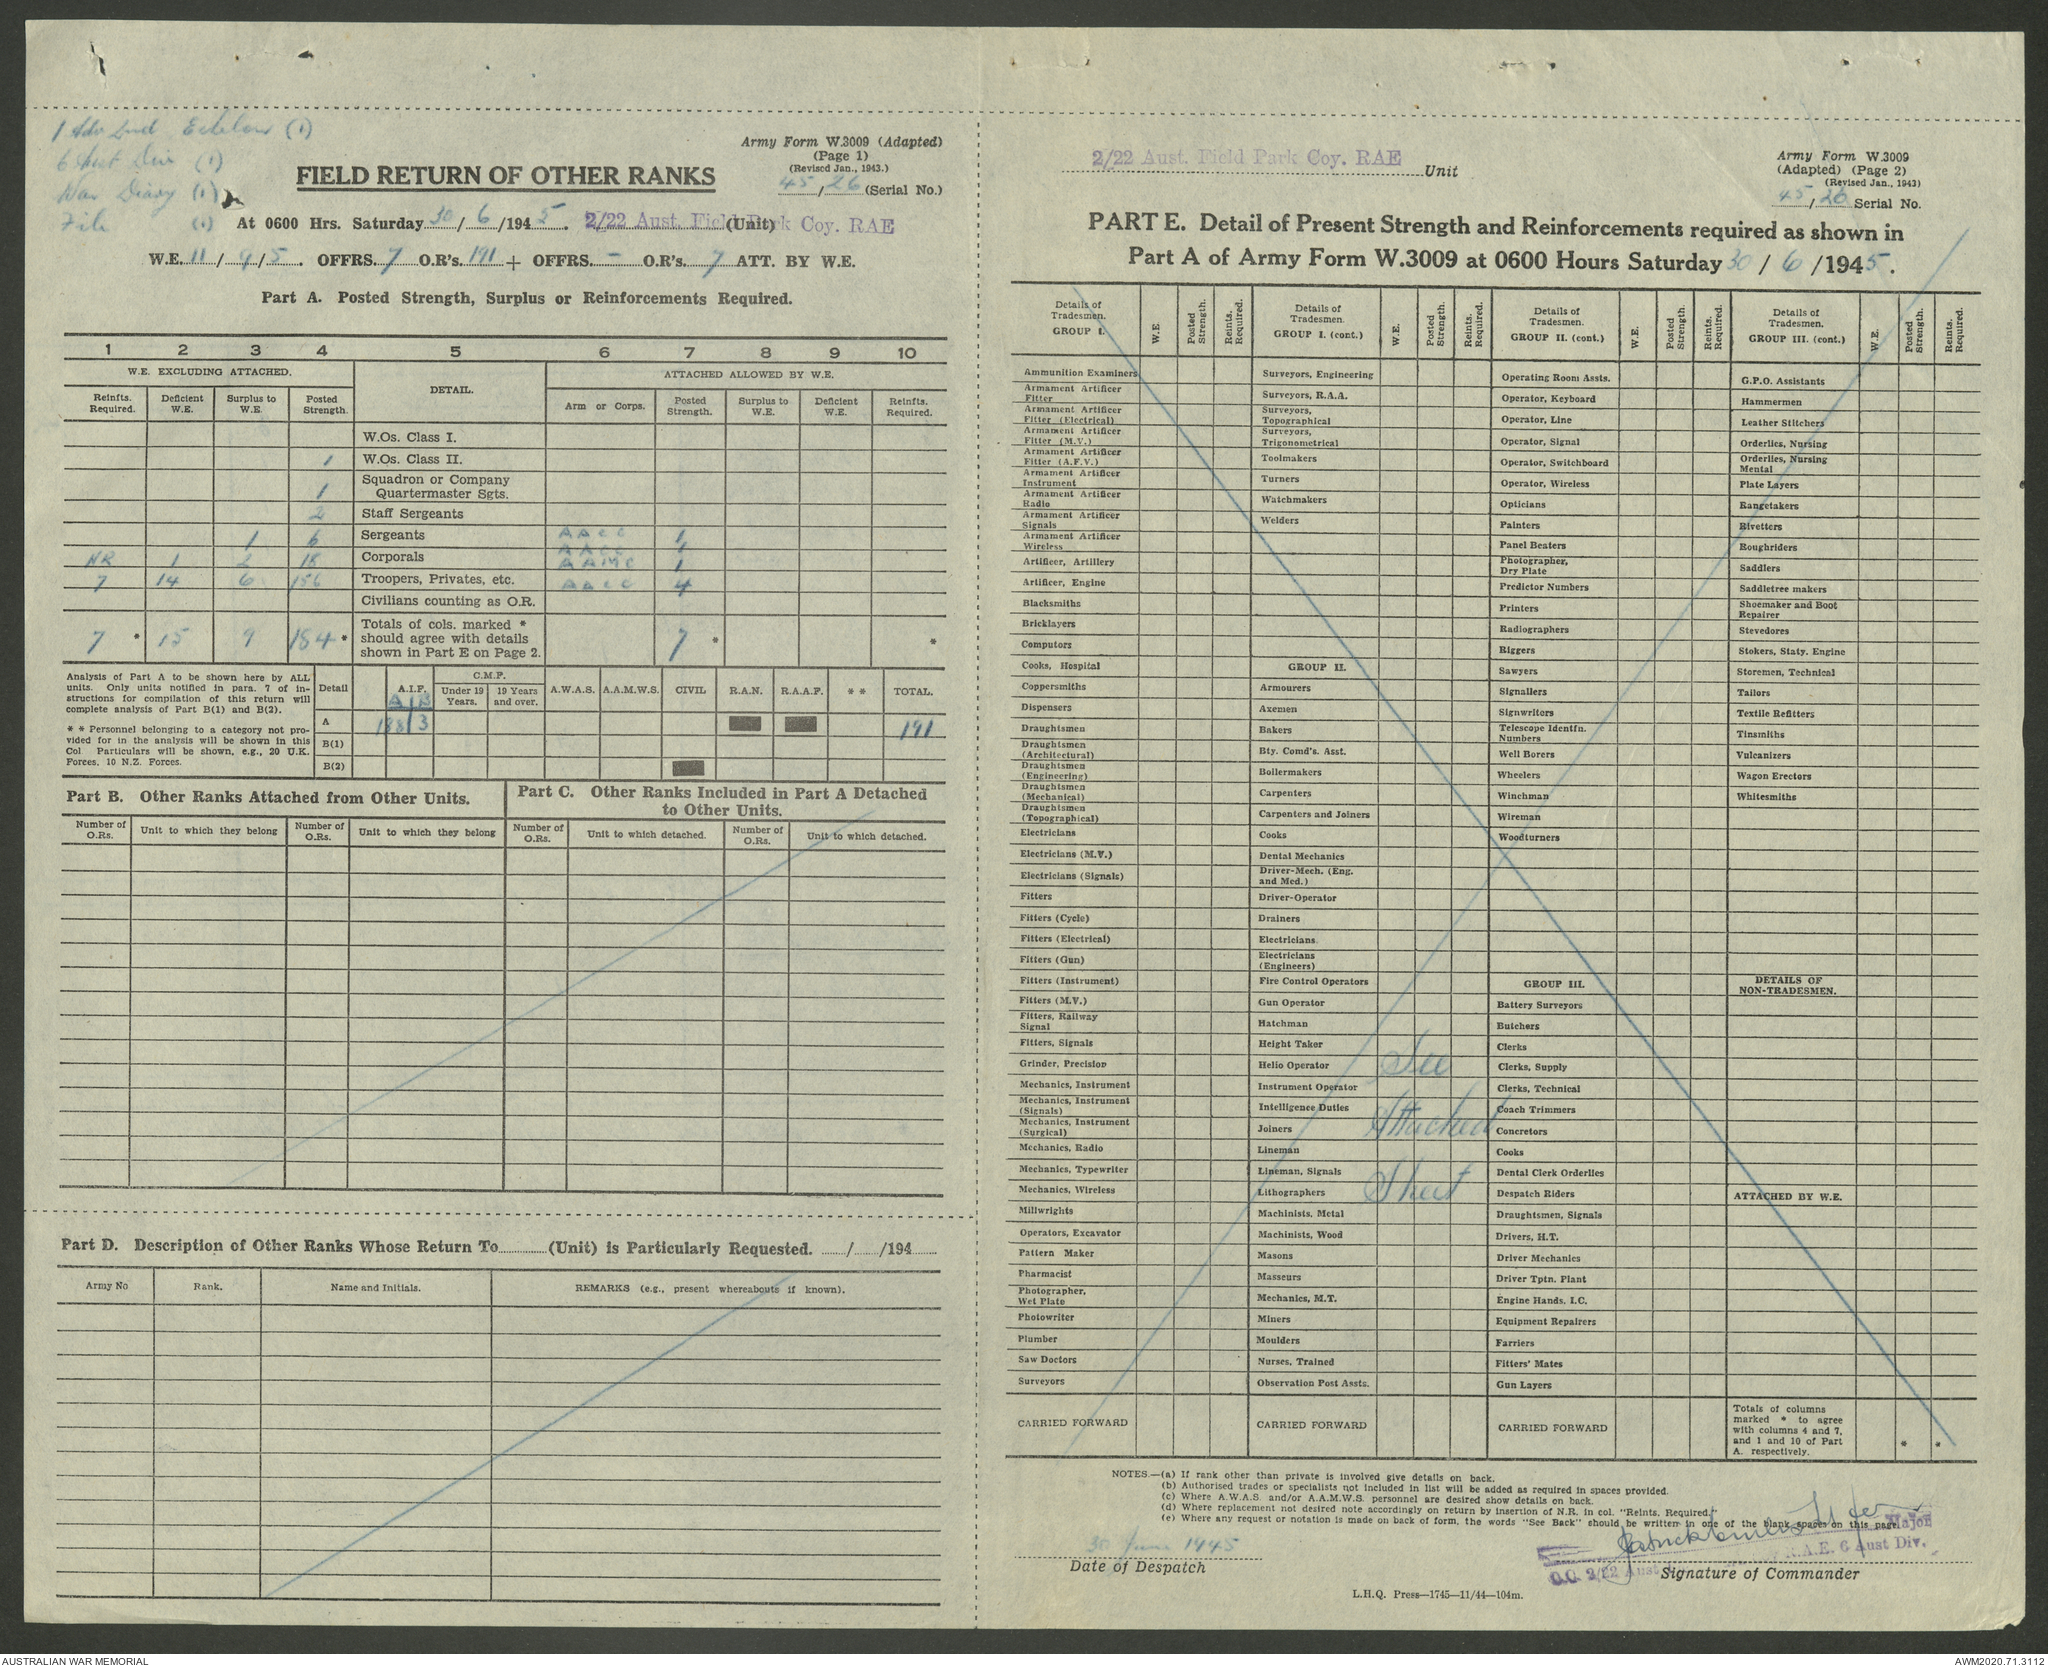 1 Adv 2nd Echelon (1)
6 Aust Div (1)
War Diary (1)
File (1)
Army Form W.3009 (Adapted)
(Page 1)
(Revised Jan., 1943.)
45/26 (Serial No.)
FIELD RETURN OF OTHER RANKS
At 0600 Hrs. Saturday 30/6/1945. 2/22 Aust. Field Park Coy. RAE (Unit)
W.E. 11/9/5. OFFRS. 7 O.R's. 191 + OFFRS. - O.R's. 7 ATT. BY W.E.
Part A. Posted Strength, Surplus or Reinforcements Required.
1 2 3 4 5 6 7 8 9 10
W.E. EXCLUDING ATTACHED. DETAIL. ATTACHED ALLOWED BY W.E.
Reinfts. Required. Deficient W.E. Surplus to W.E. Posted Strength. Arm or Corps. Posted Strength. Surplus to W.E. Deficient W.E. Reinfts. Required.
W.Os. Class I.
1 W.Os. Class II.
1 Squadron or Company Quartermaster Sgts.
2 Staff Sergeants
1 6 Sergeants AACC 1
NR 1 2 18 Corporals AACC 1
AAMC 1
7 14 6 156 Troopers, Privates, etc. AACC 4
Civilians counting as O.R.
7 * 15 9 184 * Totals of cols. marked * should agree with details shown in Part E on Page 2. 7 * *
Analysis of Part A to be shown here by ALL units. Only units notified in para. 7 of instructions for compilation of this return will complete analysis of Part B(1) and B(2).
* * Personnel belonging to a category not provided for in the analysis will be shown in this Col Particulars will be shown, e.g., 20 U.K. Forces, 10 N.Z. Forces.
Detail A.I.F. C.M.F. Under 19 Years. 19 Years and over. A.W.A.S. A.A.M.W.S. CIVIL R.A.N. R.A.A.F. * * TOTAL.
A B
A 188 3 191
B(1)
B(2)
Part B. Other Ranks Attached from Other Units.
Number of O.Rs. Unit to which they belong Number of O.Rs. Unit to which they belong
Part C. Other Ranks Included in Part A Detached to Other Units.
Number of O.Rs. Unit to which detached. Number of O.Rs. Unit to which detached.
Part D. Description of Other Ranks Whose Return To (Unit) is Particularly Requested. / /194
Army No Rank. Name and Initials. REMARKS (e.g., present whereabouts if known).
2/22 Aust. Field Park Coy. RAE Unit
Army Form W.3009
(Adapted) (Page 2)
(Revised Jan., 1943)
45/26 Serial No.
PART E. Detail of Present Strength and Reinforcements required as shown in
Part A of Army Form W.3009 at 0600 Hours Saturday 30/6/1945.
Details of Tradesmen. GROUP I. W.E. Posted Strength. Reints. Required.
Ammunition Examiners
Armament Artificer Fitter
Armament Artificer Fitter (Electrical)
Armament Artificer Fitter (M.V.)
Armament Artificer Fitter (A.F.V.)
Armament Artificer Instrument
Armament Artificer Radio
Armament Artificer Signals
Armament Artificer Wireless
Artificer, Artillery
Artificer, Engine
Blacksmiths
Bricklayers
Computors
Cooks, Hospital
Coppersmiths
Dispensers
Draughtsmen
Draughtsmen (Architectural)
Draughtsmen (Engineering)
Draughtsmen (Mechanical)
Draughtsmen (Topographical)
Electricians
Electricians (M.V.)
Electricians (Signals)
Fitters
Fitters (Cycle)
Fitters (Electrical)
Fitters (Gun)
Fitters (Instrument)
Fitters (M.V.)
Fitters, Railway Signal
Fitters, Signals
Grinder, Precision
Mechanics, Instrument
Mechanics, Instrument (Signals)
Mechanics, Instrument (Surgical)
Mechanics, Radio
Mechanics, Typewriter
Mechanics, Wireless
Millwrights
Operators, Excavator
Pattern Maker
Pharmacist
Photographer, Wet Plate
Photowriter
Plumber
Saw Doctors
Surveyors
CARRIED FORWARD
Details of Tradesmen. GROUP I. (cont.) W.E. Posted Strength. Reints. Required.
Surveyors, Engineering
Surveyors, R.A.A.
Surveyors, Topographical
Surveyors, Trigonometrical
Toolmakers
Turners
Watchmakers
Welders
GROUP II.
Armourers
Axemen
Bakers
Bty. Comd's. Asst.
Boilermakers
Carpenters
Carpenters and Joiners
Cooks
Dental Mechanics
Driver-Mech. (Eng. and Med.)
Driver-Operator
Drainers
Electricians
Electricians (Engineers)
Fire Control Operators
Gun Operator
Hatchman
Height Taker
Helio Operator
Instrument Operator
Intelligence Duties
Joiners
Lineman
Lineman, Signals
Lithographers
Machinists, Metal
Machinists, Wood
Masons
Masseurs
Mechanics, M.T.
Miners
Moulders
Nurses, Trained
Observation Post Assts.
CARRIED FORWARD
See
Attached
Sheet
Details of Tradesmen. GROUP II. (cont.) W.E. Posted Strength. Reints. Required.
Operating Room Assts.
Operator, Keyboard
Operator, Line
Operator, Signal
Operator, Switchboard
Operator, Wireless
Opticians
Painters
Panel Beaters
Photographer, Dry Plate
Predictor Numbers
Printers
Radiographers
Riggers
Sawyers
Signallers
Signwriters
Telescope Identfn. Numbers
Well Borers
Wheelers
Winchman
Wireman
Woodturners
GROUP III.
Battery Surveyors
Butchers
Clerks
Clerks, Supply
Clerks, Technical
Coach Trimmers
Concretors
Cooks
Dental Clerk Orderlies
Despatch Riders
Draughtsmen, Signals
Drivers, H.T.
Driver Mechanics
Driver Tptn. Plant
Engine Hands, I.C.
Equipment Repairers
Farriers
Fitters' Mates
Gun Layers
CARRIED FORWARD
Details of Tradesmen. GROUP III. (cont.) W.E. Posted Strength. Reints. Required.
G.P.O. Assistants
Hammermen
Leather Stitchers
Orderlies, Nursing
Orderlies, Nursing Mental
Plate Layers
Rangetakers
Rivetters
Roughriders
Saddlers
Saddletree makers
Shoemaker and Boot Repairer
Stevedores
Stokers, Staty. Engine
Storemen, Technical
Tailors
Textile Refitters
Tinsmiths
Vulcanizers
Wagon Erectors
Whitesmiths
DETAILS OF NON-TRADESMEN.
ATTACHED BY W.E.
Totals of columns marked * to agree with columns 4 and 7, and 1 and 10 of Part A. respectively. * *
NOTES.—(a) If rank other than private is involved give details on back.
(b) Authorised trades or specialists not included in list will be added as required in spaces provided.
(c) Where A.W.A.S. and/or A.A.M.W.S. personnel are desired show details on back.
(d) Where replacement not desired note accordingly on return by insertion of N.R. in col. "Reints. Required."
(e) Where any request or notation is made on back of form, the words "See Back" should be written in one of the blank spaces on this page.
30 June 1945
Date of Despatch
Major
O.C. 2/22 Aust R.A.E. 6 Aust Div.
Signature of Commander
L.H.Q. Press—1745—11/44—104m.
AUSTRALIAN WAR MEMORIAL
AWM2020.71.3112